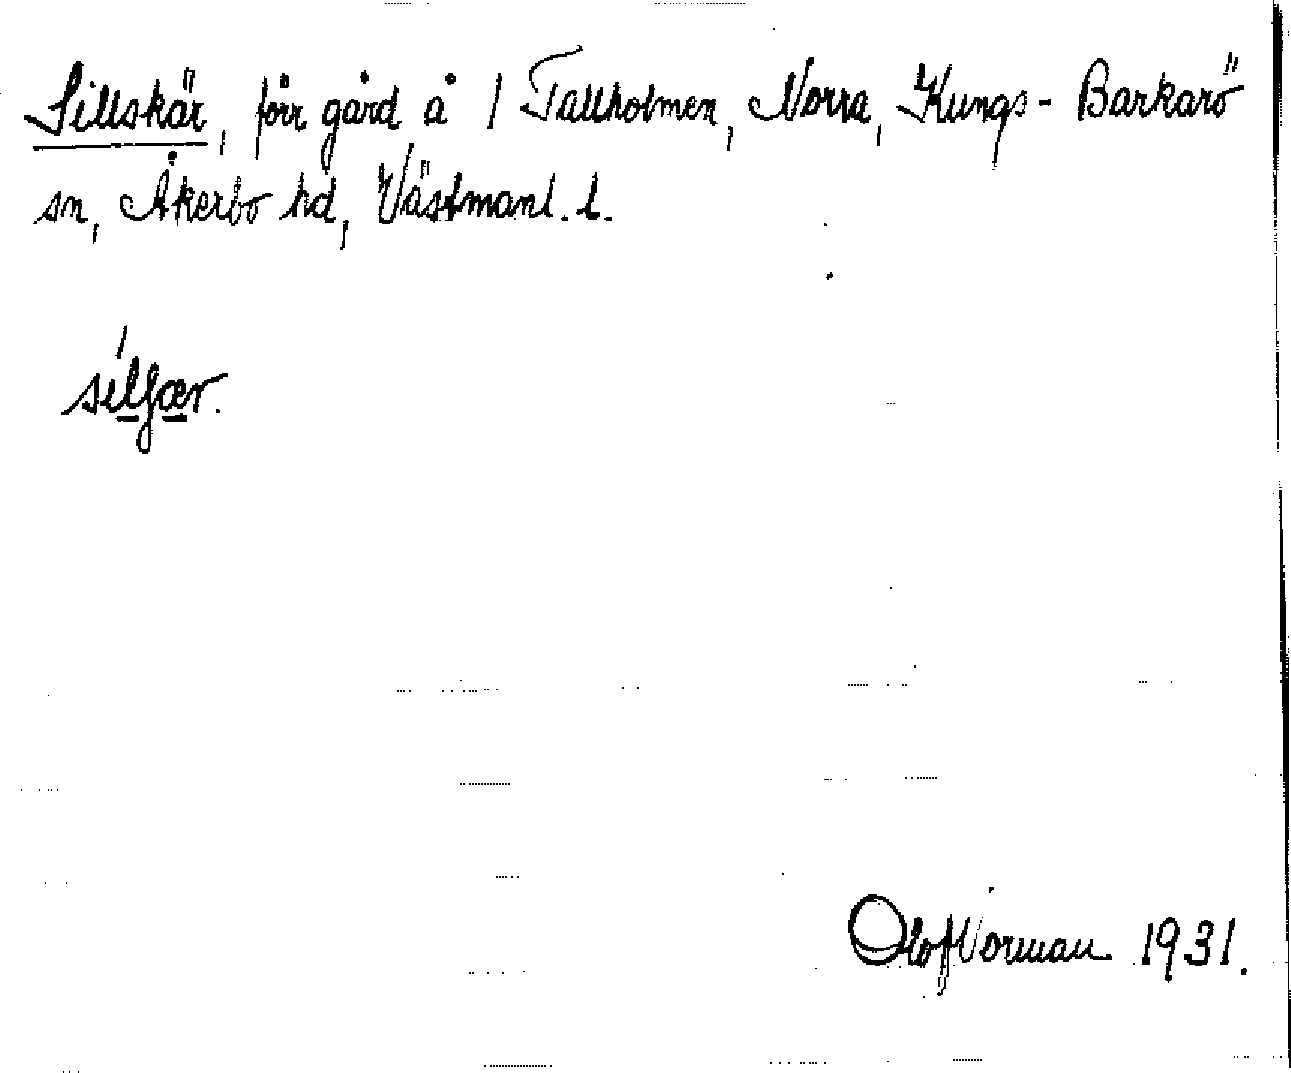 Sillskär, förr gård å 1 Tallholmen, Norra, Kungs-Barkarö
sn, Åkerbo hd, Västmanl. l.
Olof Norman 1931.